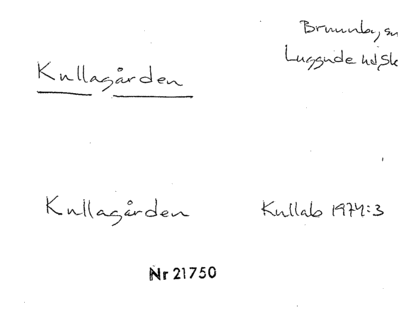 Brunnby, sn
Luggude hd, Sk
Kullagården
Kullagården Kullab 1974:3
Nr 21750